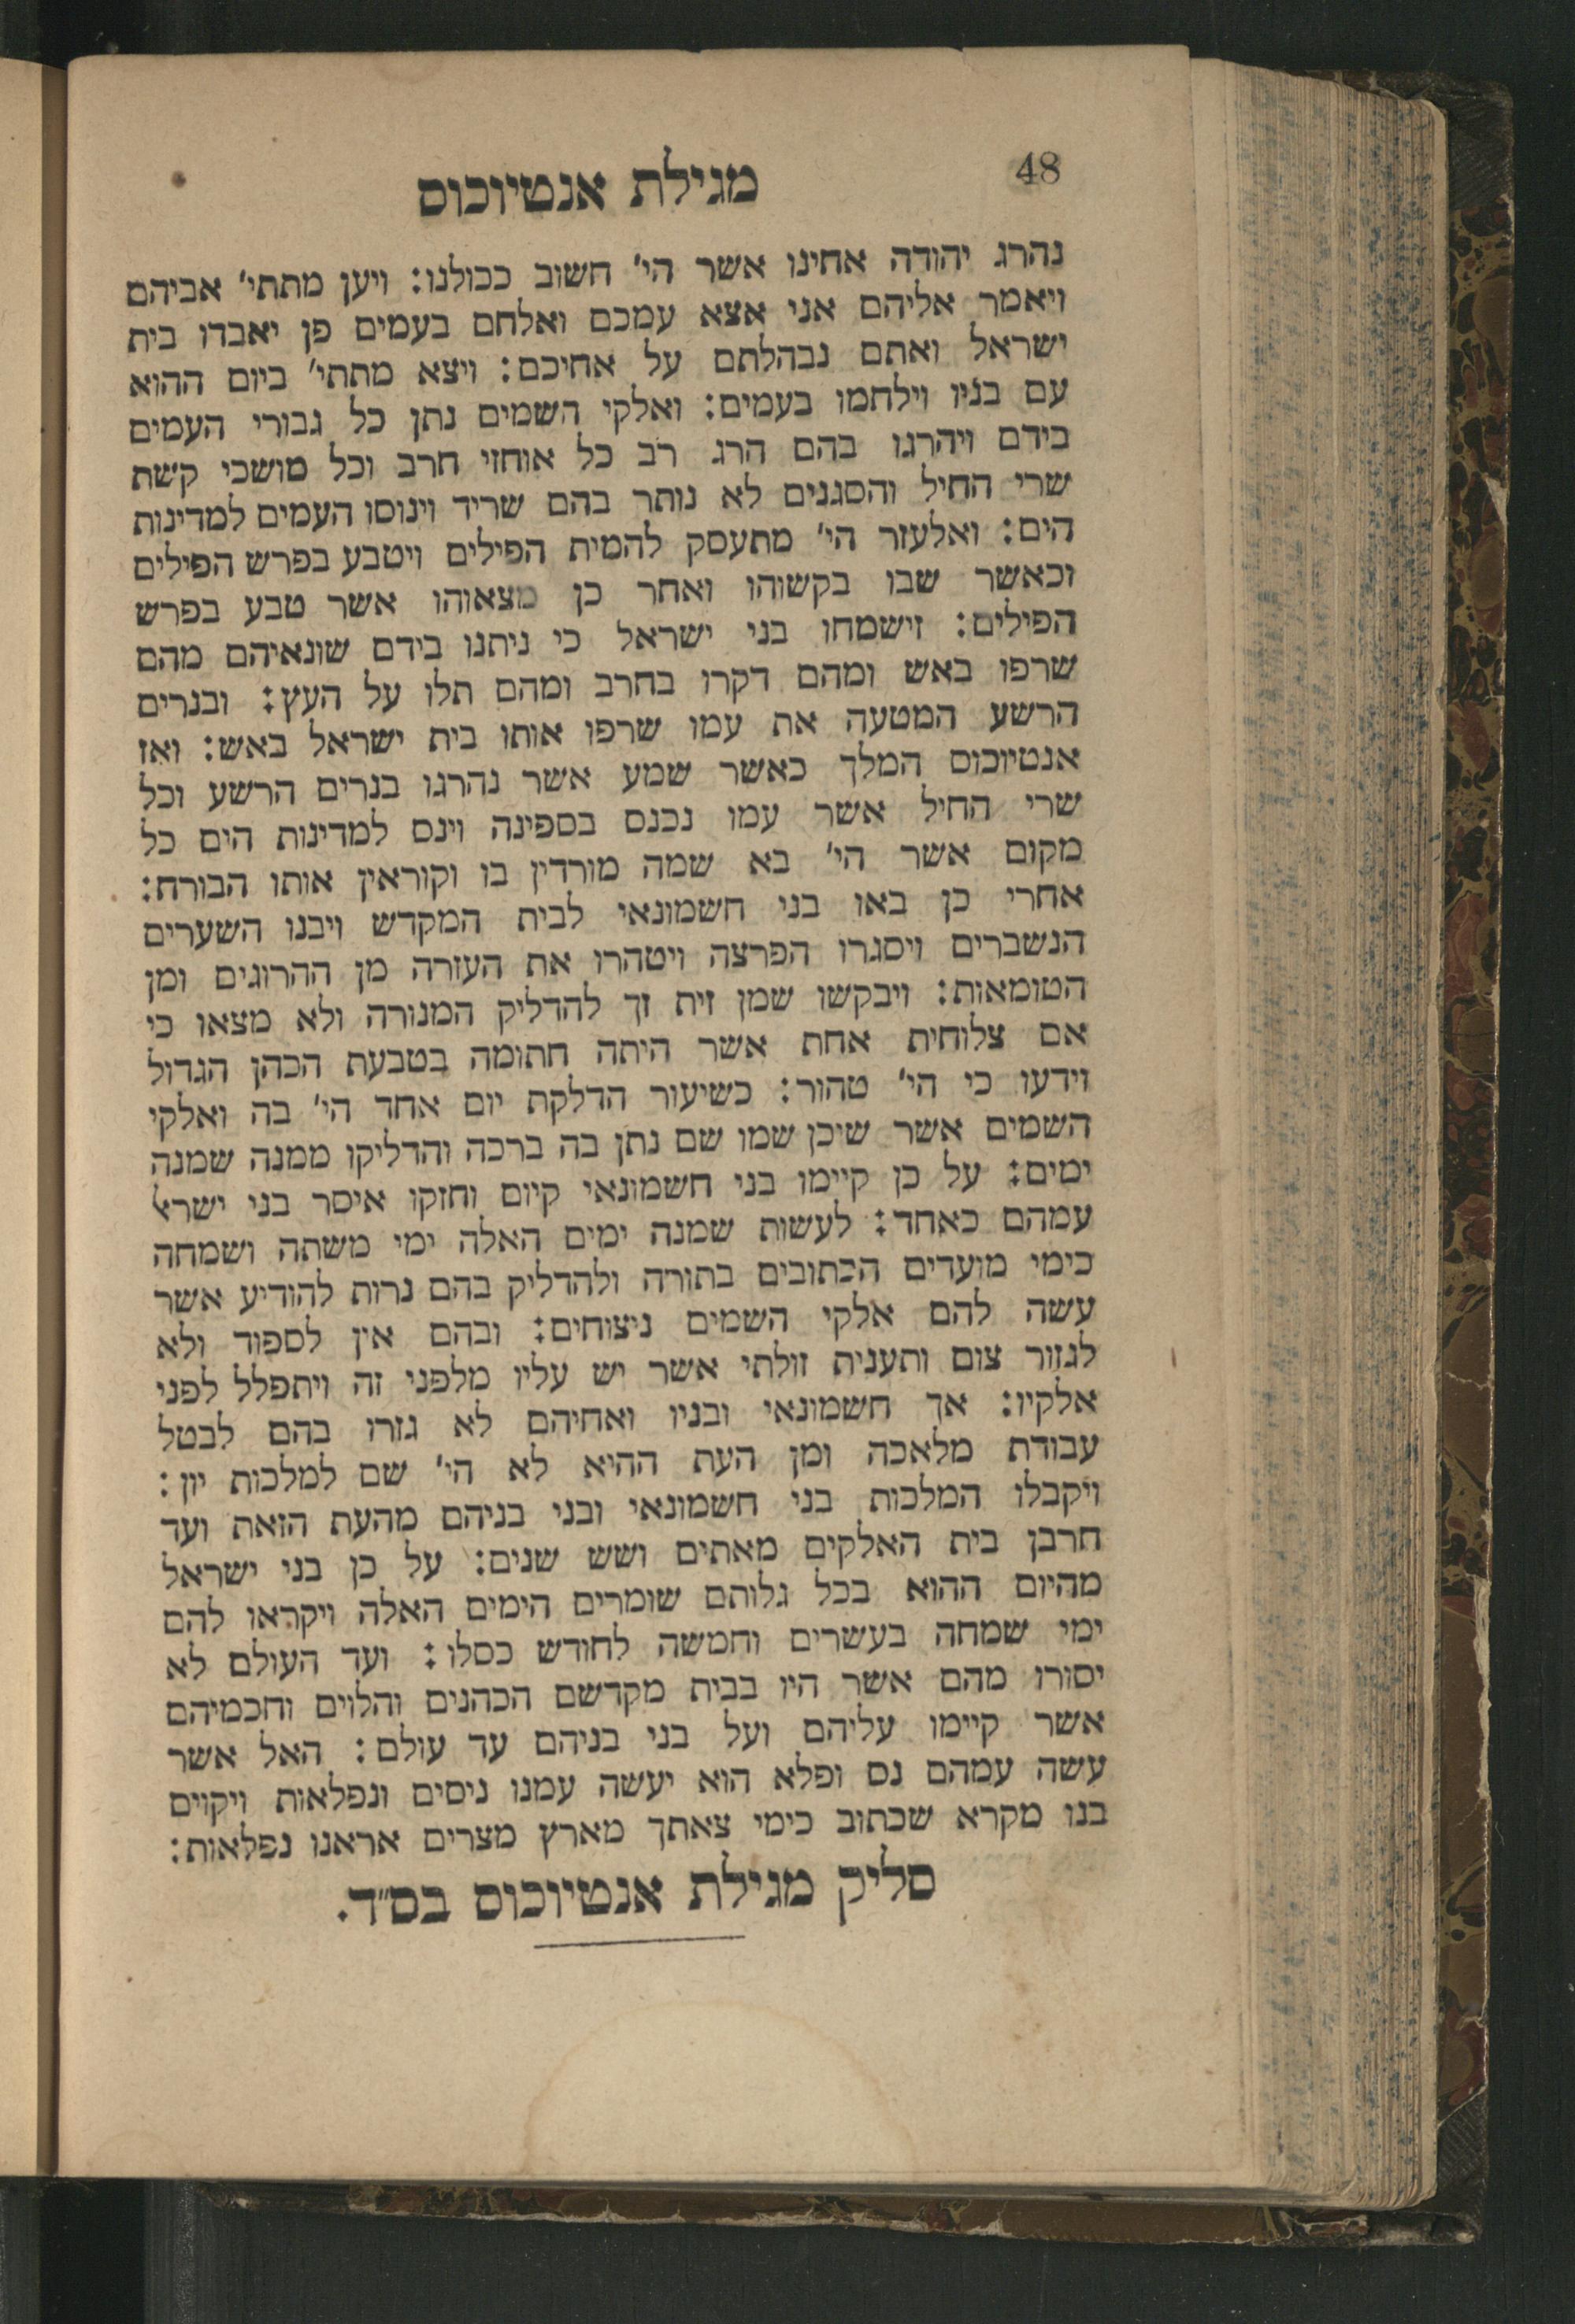 48
מגילת אנטיוכוס
נהרג יהודה אחינו אשר הי׳ חשוב ככולנו: ויען מתתי׳ אביהם
ויאמר אליהם אני אצא עמכם ואלחם בעמים פן יאבדו בית
ישראל ואתם נבהלתם על אחיכם: ויצא מתתי׳ ביום ההוא
עם בניו וילחמו בעמים: ואלקי השמים נתן כל גבורי העמים
בידם ויהרגו בהם הרג רב כל אוחזי חרב וכל מושכי קשת
שרי החיל והסגנים לא נותר בהם שריד וינוסו העמים למדינות
הים: ואלעזר הי׳ מתעסק להמית הפילים ויטבע בפרש הפילים
וכאשר שבו בקשוהו ואחר כן מצאוהו אשר טבע בפרש
הפילים: וישמחו בני ישראל כי ניתנו בידם שונאיהם מהם
שרפו באש ומהם דקרו בחרב ומהם תלו על העץ: ובגרים
הרשע המטעה את עמו שרפו אותו בית ישראל באש: ואז
אנטיוכוס המלך כאשר שמע אשר נהרגו בגרים הרשע וכל
שרי החיל אשר עמו נכנס בספינה וינס למדינות הים כל
מקום אשר הי׳ בא שמה מורדין בו וקוראין אותו הבורח:
אחרי כן באו בני חשמונאי לבית המקדש ויבנו השערים
הנשברים ויסגרו הפרצה ויטהרו את העזרה מן ההרוגים ומן
הטומאות: ויבקשו שמן זית זך להדליק המנורה ולא מצאו כי
אם צלוחית אחת אשר היתה חתומה בטבעת הכהן הגדול
וידעו כי הי׳ טהור: כשיעור הדלקת יום אחד הי׳ בה ואלקי
השמים אשר שיכן שמו שם נתן בה ברכה והדליקו ממנה שמנה
ימים: על כן קיימו בני חשמונאי קיום וחזקו איסר בני ישראל
עמהם כאחד: לעשות שמנה ימים האלה ימי משתה ושמחה
כימי מועדים הכתובים בתורה ולהדליק בהם נרות להודיע אשר
עשה להם אלקי השמים ניצוחים: ובהם אין לספוד ולא
לגזור צום ותענית זולתי אשר יש עליו מלפני זה ויתפלל לפני
אלקיו: אך חשמונאי ובניו ואחיהם לא גזרו בהם לבטל
עבודת מלאכה ומן העת ההיא לא הי׳ שם למלכות יון:
ויקבלו המלכות בני חשמונאי ובני בניהם מהעת הזאת ועד
חרבן בית האלקים מאתים ושש שנים: על כן בני ישראל
מהיום ההוא בכל גלותם שומרים הימים האלה ויקראו להם
ימי שמחה בעשרים וחמשה לחודש כסלו: ועד העולם לא
יסורו מהם אשר היו בבית מקדשם הכהנים והלוים וחכמיהם
אשר קיימו עליהם ועל בני בניהם עד עולם: האל אשר
עשה עמהם נס ופלא הוא יעשה עמנו ניסים ונפלאות ויקוים
בנו מקרא שכתוב כימי צאתך מארץ מצרים אראנו נפלאות:
סליק מגילת אנטיוכוס בס״ד.